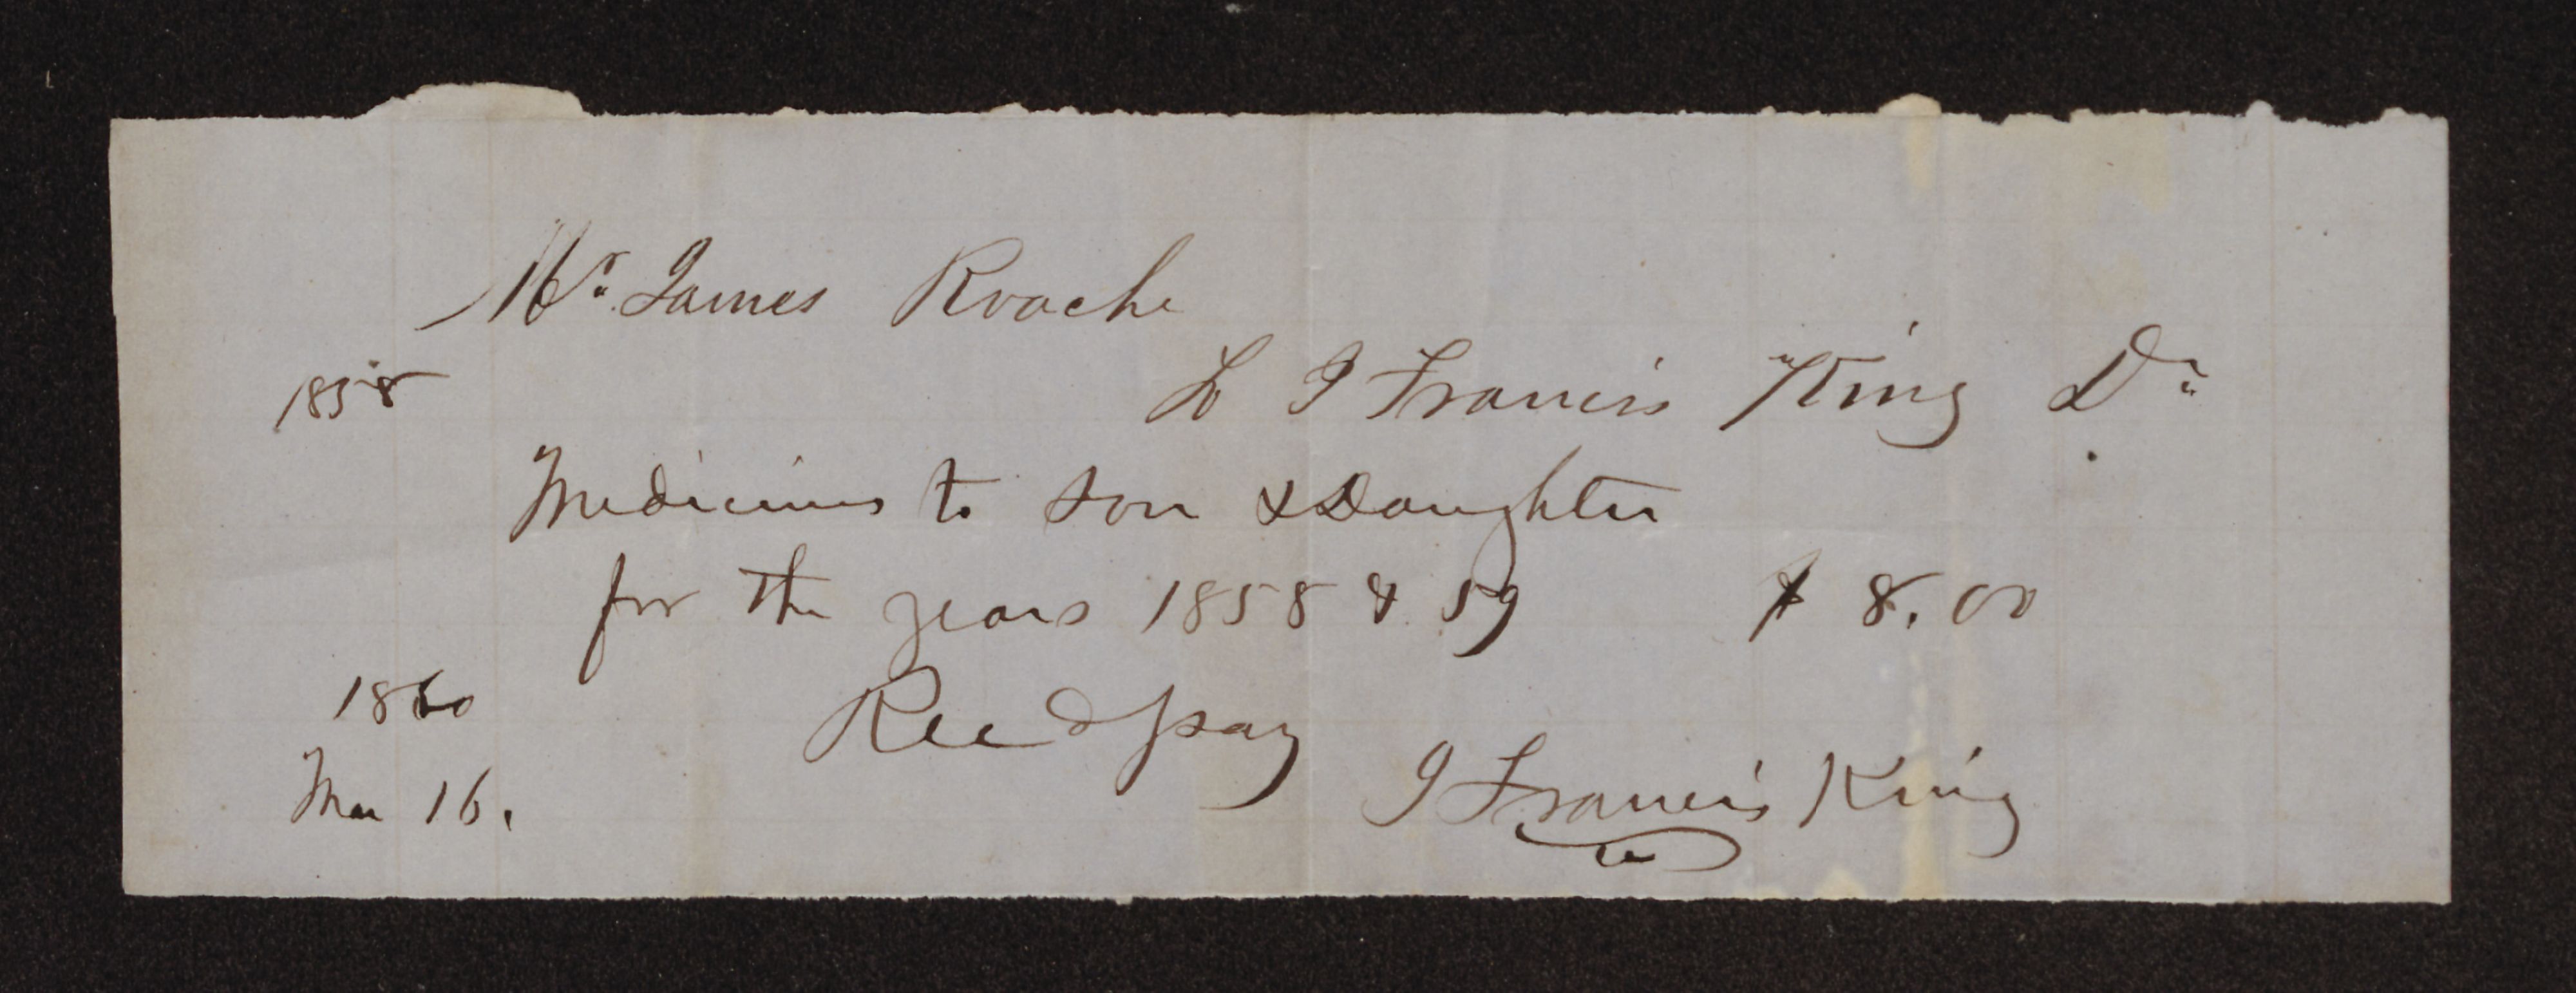 Mr. James Roache
1858
To J Francis King Dr
Medicines to son & Daughter
for the years 1858 & 59 $ 8.00
1860
Recd pay
Mar 16.
J Francis King